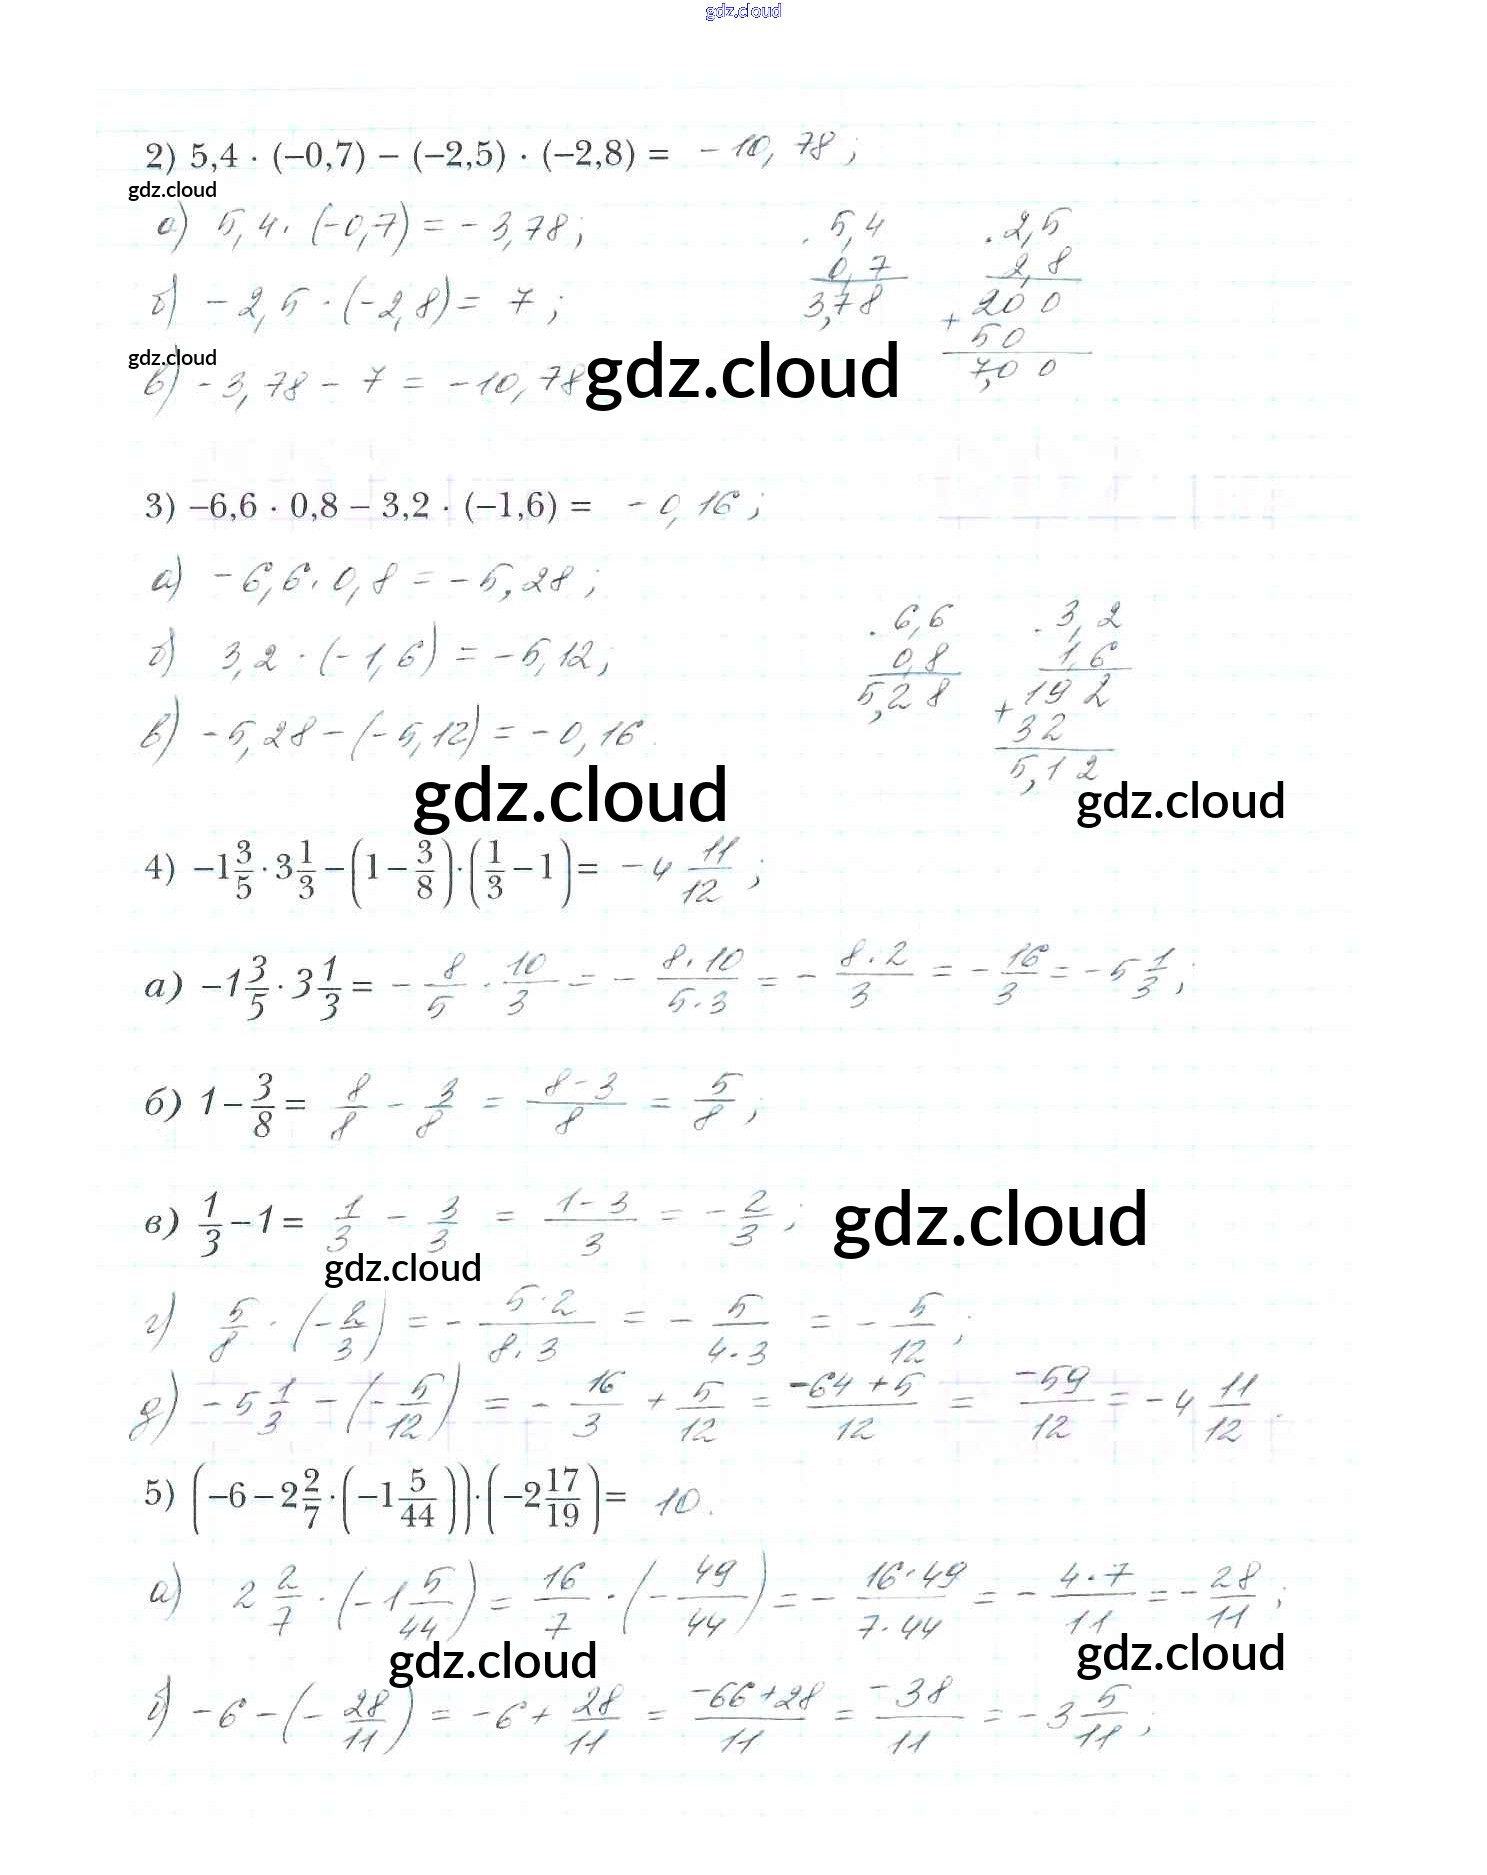 gdz.cloud
2) 5,4 · (–0,7) – (–2,5) · (–2,8) = – 10,78;
gdz.cloud
а) 5,4 · (–0,7) = – 3,78;
5,4
0,7
3,78
2,5
2,8
200
+
50
7,00
б) – 2,5 · (–2,8) = 7;
gdz.cloud
в) – 3,78 – 7 = – 10,78
gdz.cloud
3) –6,6 · 0,8 – 3,2 · (–1,6) = – 0,16;
а) – 6,6 · 0,8 = – 5,28;
б) 3,2 · (–1,6) = – 5,12;
6,6
0,8
5,28
3,2
1,6
192
+
32
5,12
в) – 5,28 – (– 5,12) = – 0,16.
gdz.cloud
gdz.cloud
4) –1 3/5 · 3 1/3 – (1 – 3/8) · (1/3 – 1) = – 4 11/12;
а) –1 3/5 · 3 1/3 = – 8/5 · 10/3 = – 8·10/5·3 = – 8·2/3 = – 16/3 = – 5 1/3;
б) 1 – 3/8 = 8/8 – 3/8 = 8–3/8 = 5/8;
в) 1/3 – 1 = 1/3 – 3/3 = 1–3/3 = – 2/3;
gdz.cloud
gdz.cloud
г) 5/8 · (– 2/3) = – 5·2/8·3 = – 5/4·3 = – 5/12;
д) – 5 1/3 – (– 5/12) = – 16/3 + 5/12 = –64+5/12 = –59/12 = – 4 11/12.
5) (–6 – 2 2/7 · (–1 5/44)) · (–2 17/19) = 10.
а) 2 2/7 · (–1 5/44) = 16/7 · (– 49/44) = – 16·49/7·44 = – 4·7/11 = – 28/11;
gdz.cloud
gdz.cloud
б) – 6 – (– 28/11) = – 6 + 28/11 = –66+28/11 = –38/11 = – 3 5/11;